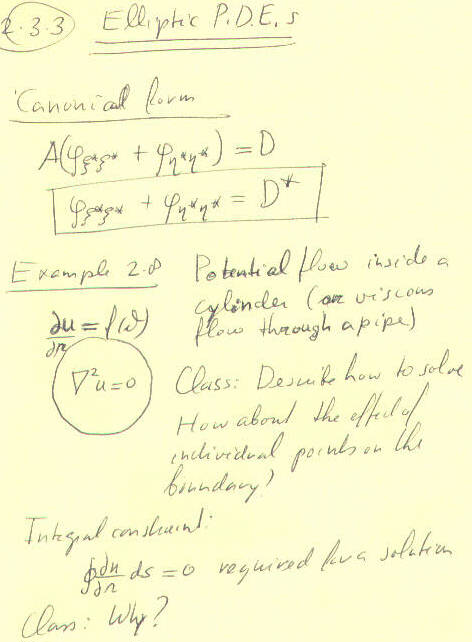 2.3.3 Elliptic P.D.E.s
Canonical form
A(φξ*ξ* + φη*η*) = D
φξ*ξ* + φη*η* = D*
Example 2.8 Potential flow inside a
cylinder (or viscous
flow through a pipe)
∂u/∂n = f(ϑ)
∇²u=0
Class: Describe how to solve
How about the effect of
individual points on the
boundary?
Integral constraint:
∮ ∂u/∂n ds = 0 required for a solution
Class: Why?